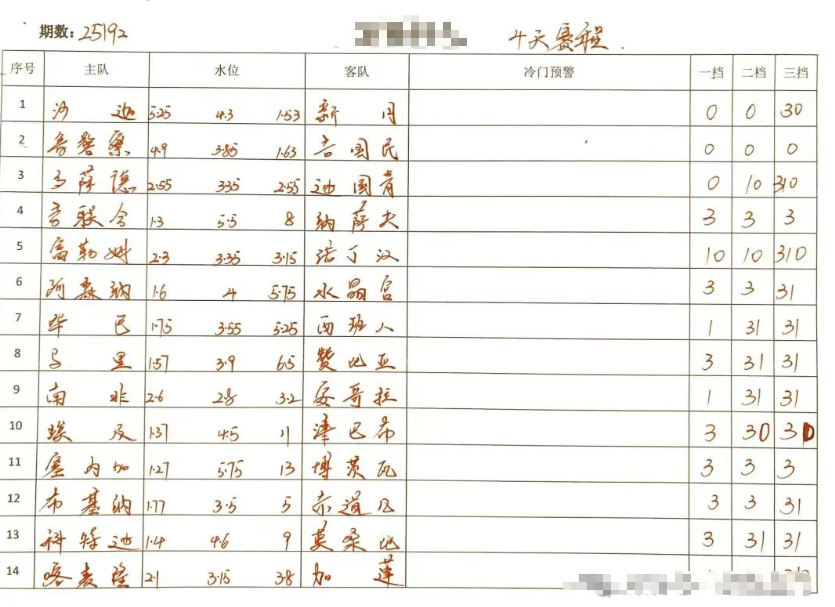 期数: 25192 4天赛程.
序号 主队 水位 客队 冷门预警 一挡 二档 三挡
1 沙迦 5.25 4.3 1.53 新月 0 0 30
2 鲁警察 4.9 3.85 1.63 吉国民 0 0 0
3 马萨德 2.55 3.35 2.55 迪国青 0 10 310
4 吉联合 1.3 5.5 8 纳萨夫 3 3 3
5 富勒姆 2.3 3.35 3.15 诺丁汉 10 10 310
6 阿森纳 1.6 4 5.75 水晶宫 3 3 31
7 毕巴 1.75 3.55 5.25 西班人 1 31 31
8 马里 1.57 3.9 6.5 赞比亚 3 31 31
9 南非 2.6 2.8 3.2 安哥拉 1 31 31
10 埃及 1.37 4.5 11 津巴布 3 30 30
11 塞内加 1.27 5.75 13 博茨瓦 3 3 3
12 布基纳 1.77 3.5 5 赤道几 3 3 31
13 科特迪 1.4 4.6 9 莫桑比 3 31 31
14 喀麦隆 2.1 3.15 3.8 加蓬